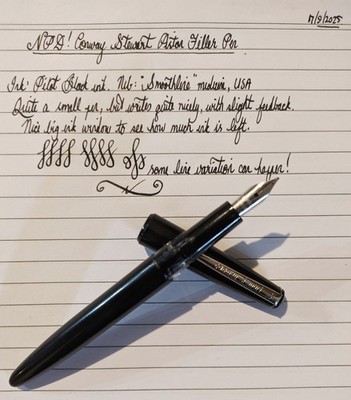 7/9/2025
NPD! Conway Stewart Piston Filler Pen
Ink: Pilot Black ink. Nib: "Smoothline" medium, USA
Quite a small pen, but writes quite nicely, with slight feedback.
Nice big ink window to see how much ink is left.
some line variation can happen!